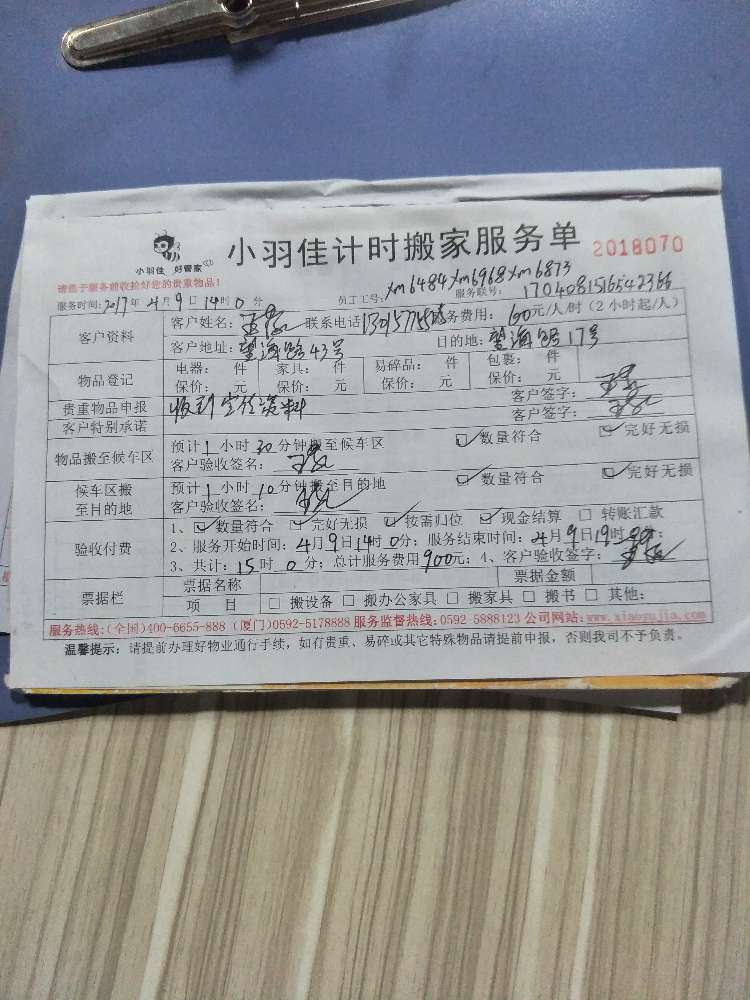 小羽佳 好管家
小羽佳计时搬家服务单 2018070
请您于服务前收捡好您的贵重物品!
服务时间:2017年4月9日14时0分 员工工号:xm6484 xm6968 xm6873 服务联号:
客户资料 客户姓名: 联系电话 服务费用:60元/人/时(2小时起/人)
客户地址:望海路43号 目的地:望海路17号
物品登记 电器: 件 家具: 件 易碎品: 件 包裹: 件
保价: 元 保价: 元 保价: 元 保价: 元
贵重物品申报 收到宣传资料 客户签字:
客户特别承诺 客户签字:
物品搬至候车区 预计1小时30分钟搬至候车区 ☑数量符合 ☑完好无损
客户验收签名:
候车区搬至目的地 预计1小时10分钟搬至目的地 ☑数量符合 ☑完好无损
客户验收签名:
验收付费 1、☑数量符合 ☑完好无损 ☑按需归位 ☑现金结算 □转账汇款
2、服务开始时间:4月9日14时0分;服务结束时间:4月9日19时
3、共计:15时0分;总计服务费用900元;4、客户验收签字:
票据栏 票据名称 票据金额
项 目 □搬设备 □搬办公家具 □搬家具 □搬书 □其他:
服务热线:(全国)400-6655-888 (厦门)0592-5178888 服务监督热线:0592-5888123 公司网站:www.xiaoyujia.com
温馨提示:请提前办理好物业通行手续,如有贵重、易碎或其它特殊物品请提前申报,否则我司不予负责。